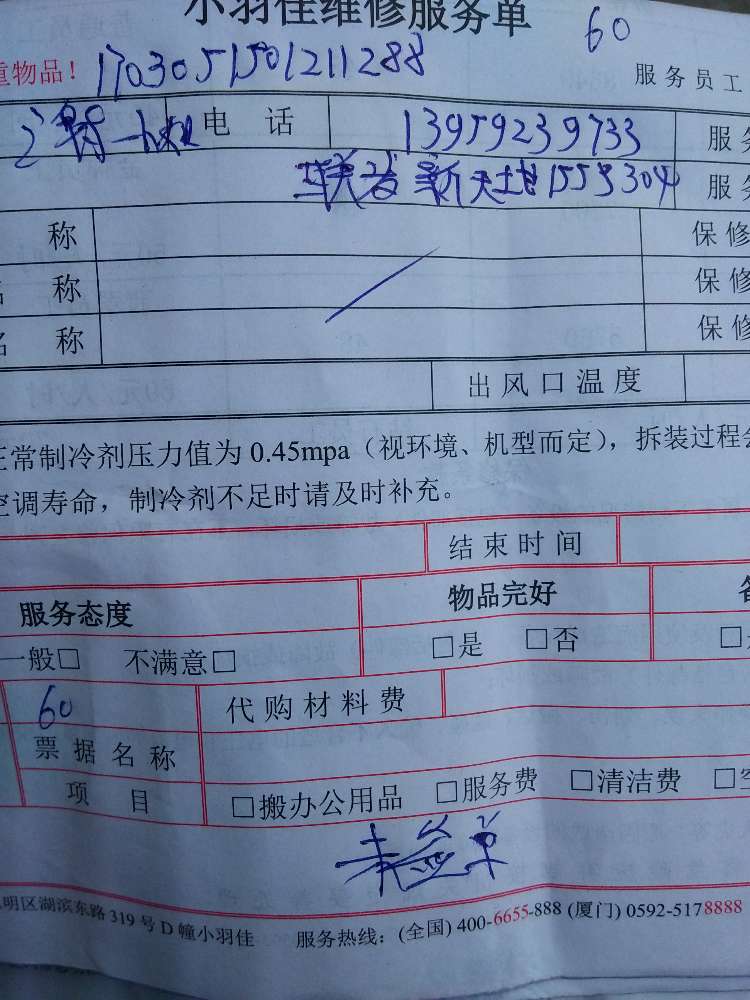 小羽佳维修服务单 60
重物品！ 1703051501211288 服务员工
电 话 13959239733 服务
新天地 155号304 服务
称 保修
名 称 保修
名 称 保修
出风口温度
正常制冷剂压力值为 0.45mpa（视环境、机型而定），拆装过程会
空调寿命，制冷剂不足时请及时补充。
结束时间
服务态度 物品完好
一般□ 不满意□ □是 □否 □
60 代购材料费
票据名称
项 目 □搬办公用品 □服务费 □清洁费 □空
未签单
明区湖滨东路 319 号 D 幢小羽佳 服务热线：(全国) 400-6655-888 (厦门) 0592-5178888